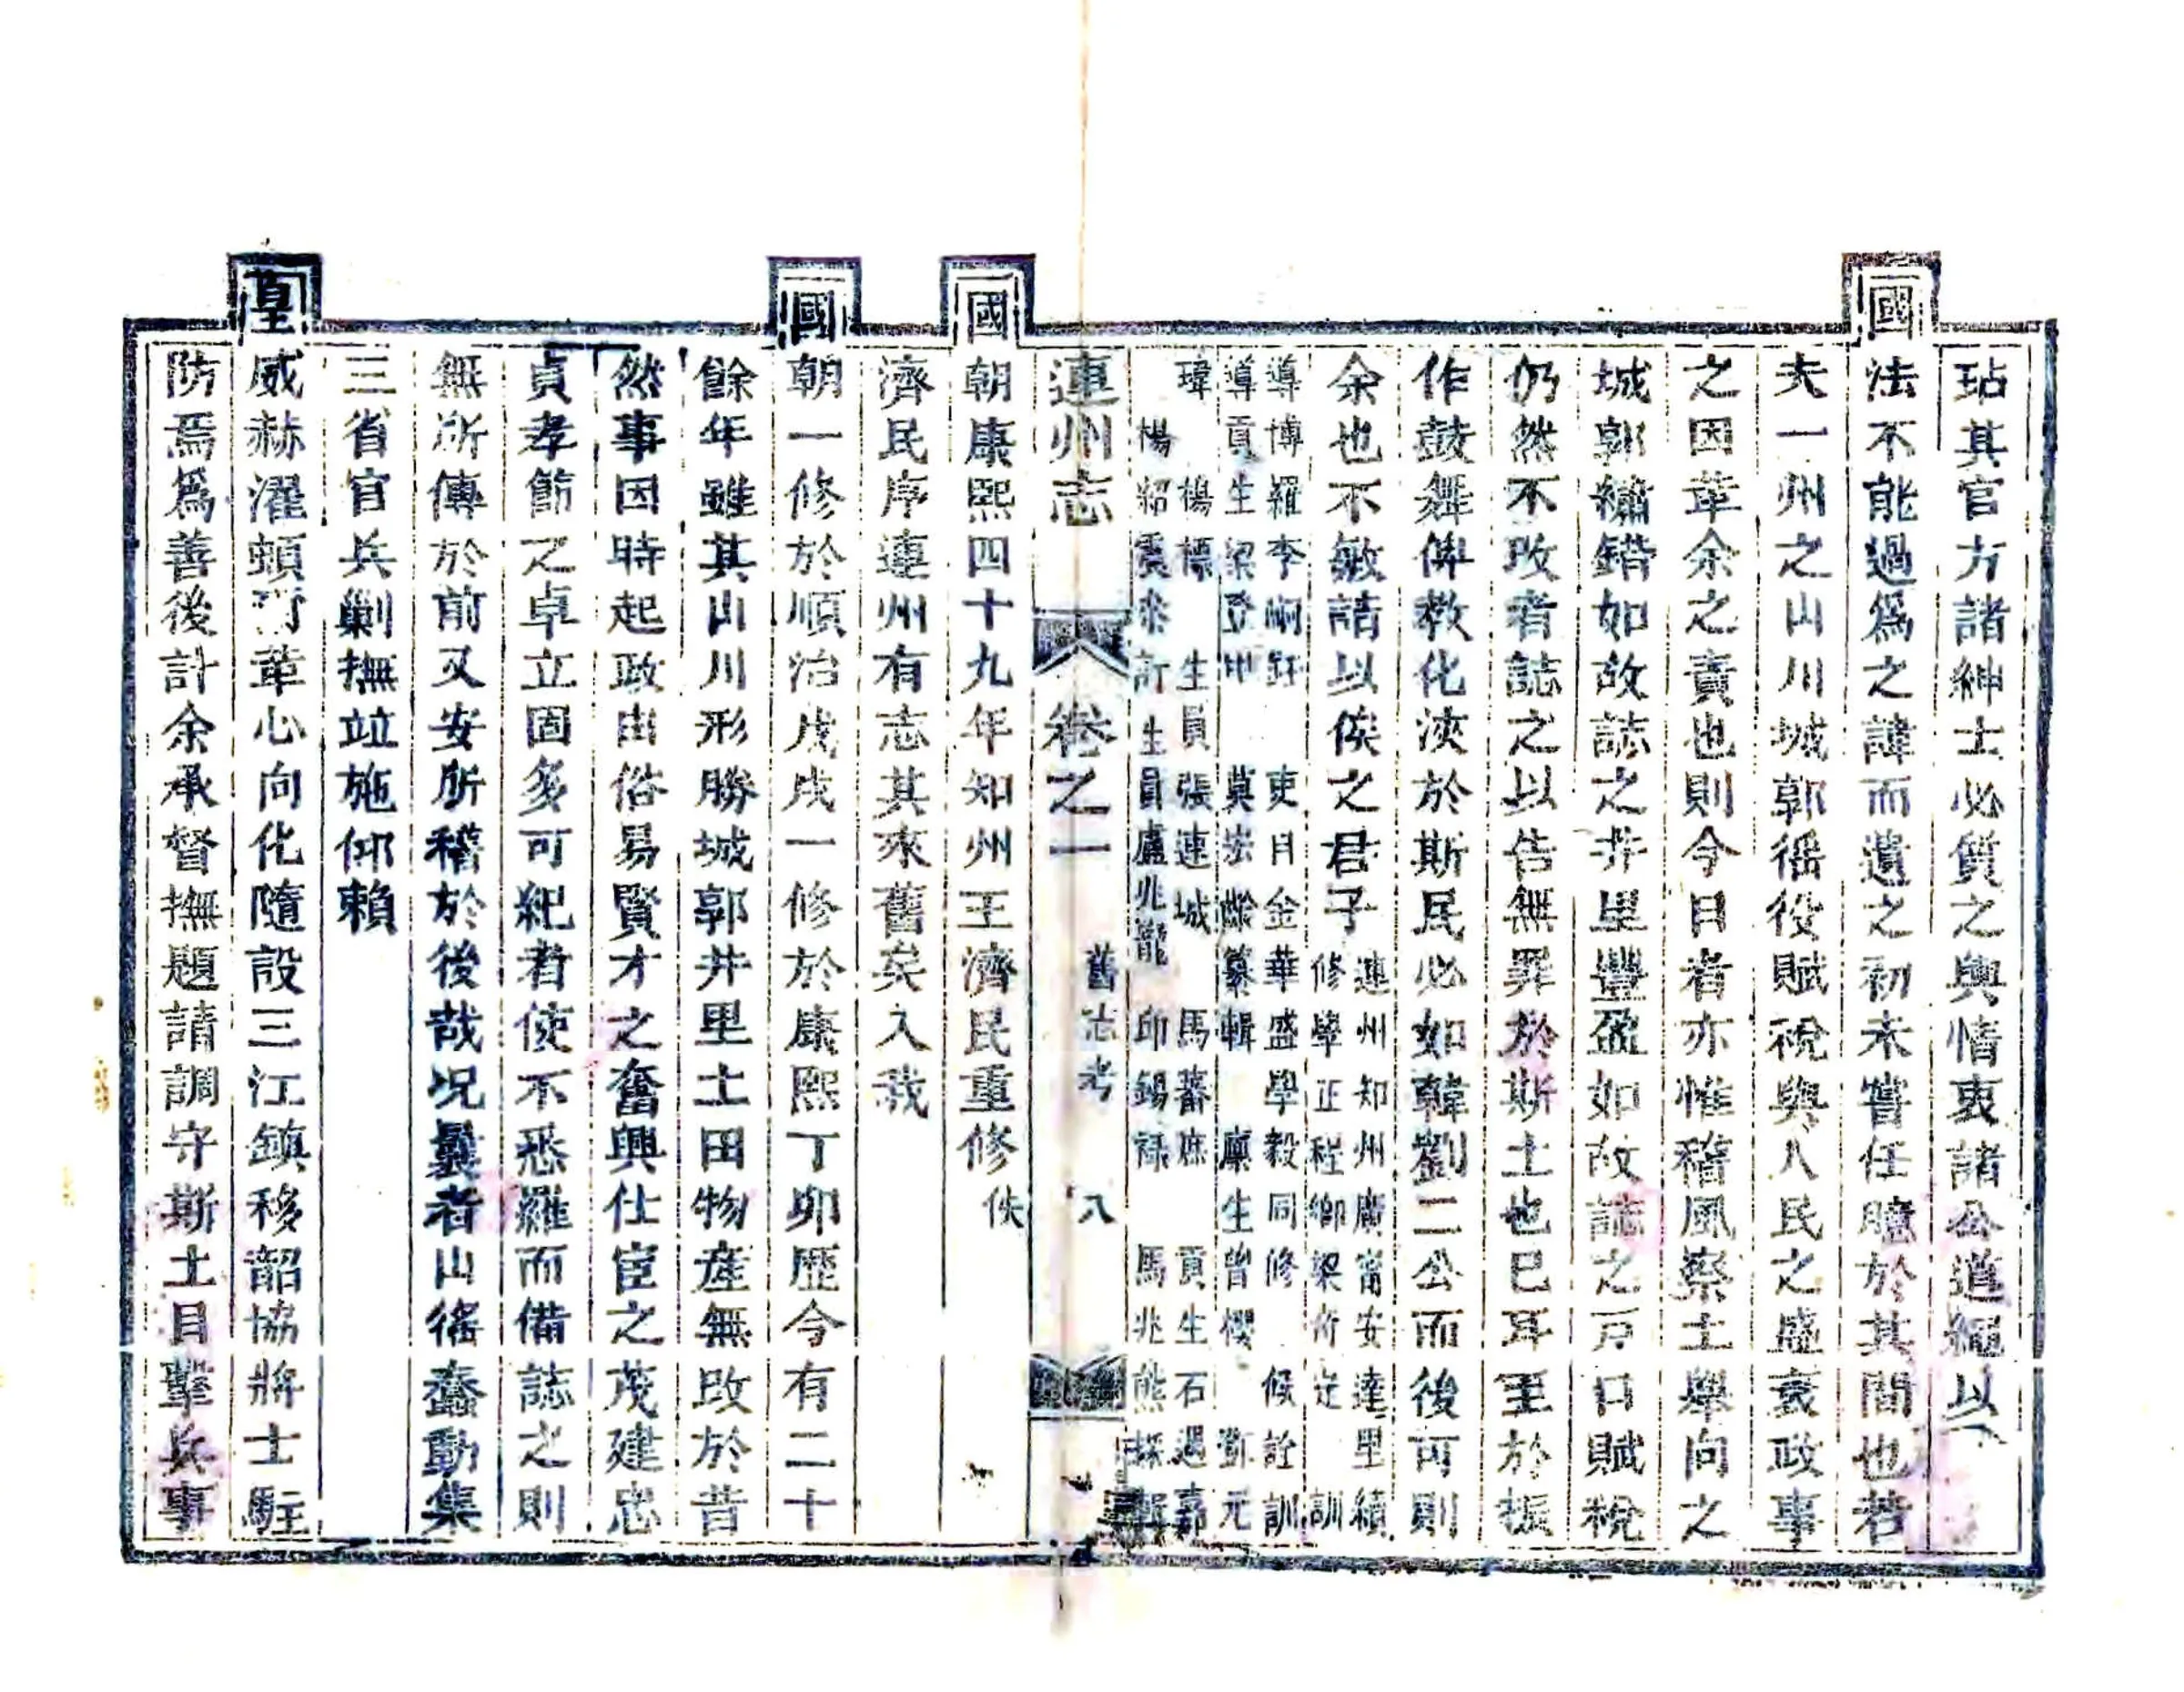 玷其官方諸紳士必質之輿情衷諸公道繩以
國法不能過爲之諱而遺之初未嘗任臆於其間也若
夫一州之山川城郭徭役賦稅與人民之盛衰政事
之因革余之責也則今日者亦惟稽風察土舉向之
城郭繡錯如故誌之井里豐盈如故誌之戸口賦稅
仍然不改者誌之以告無罪於斯土也已耳至於振
作鼓舞俾教化浹於斯民必如韓劉二公而後可則
余也不敏請以俟之君子
連州知州廣甯安達里續
修學正程鄉梁 定 訓
導博羅李嗣鈺 吏目金華盛學毅同修 候詮訓
導貢生梁登印 莫宏齡纂輯 廩生曾櫻 鄧元
瑋 楊標 生員張連城 馬蕃庶 貢生石遇嘉
楊紹震 訂生員盧兆龍 邱錫祿 馬兆熊採輯
連州志 卷之一 舊志考 八
國朝康熙四十九年知州王濟民重修 佚
濟民序連州有志其來舊矣入我
國朝一修於順治戊戌一修於康熙丁卯歷今有二十
餘年雖其山川形勝城郭井里土田物產無改於昔
然事因時起政由俗易賢才之奮興仕宦之茂建忠
貞孝節之卓立固多可紀者使不悉羅而備誌之則
無所傳於前又安所稽於後哉况曩者山徭蠢動集
三省官兵剿撫竝施仰賴
皇威赫濯頓爾革心向化隨設三江鎮移韶協將士駐
防焉爲善後計余承督撫題請調守斯土目擊兵事